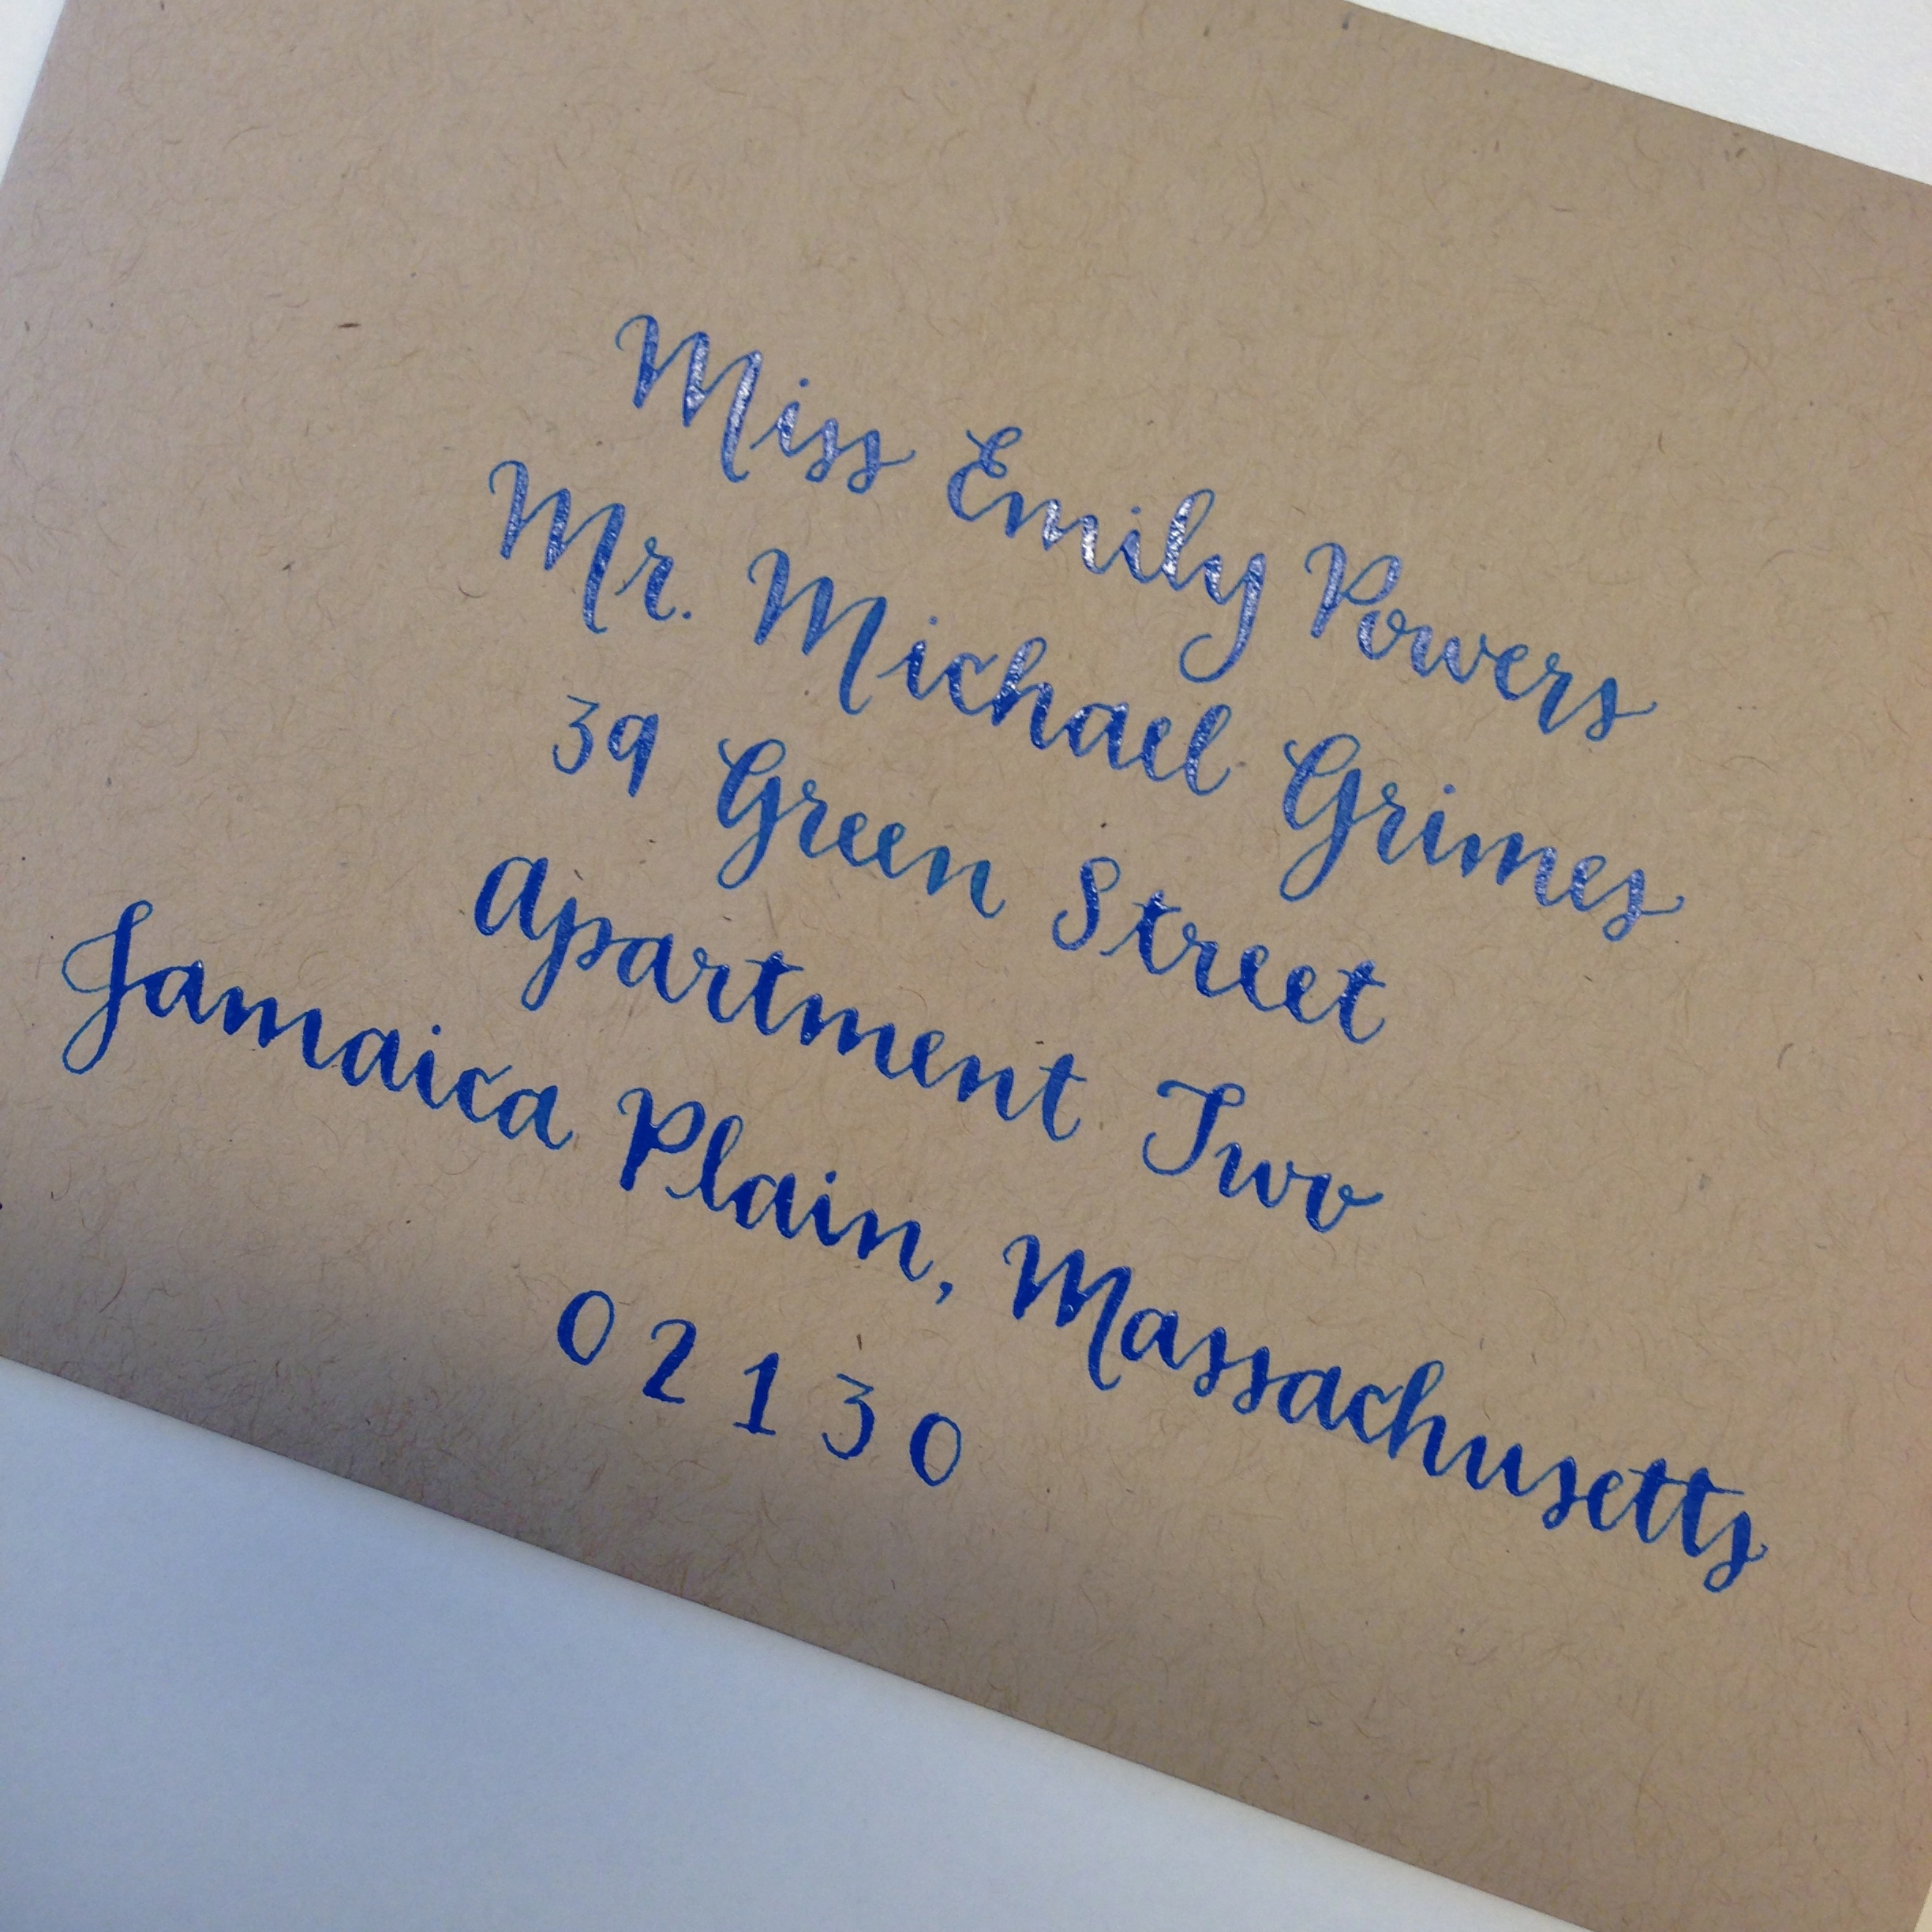 Miss Emily Powers
Mr. Michael Grimes
39 Green Street
Apartment Two
Jamaica Plain, Massachusetts
02130